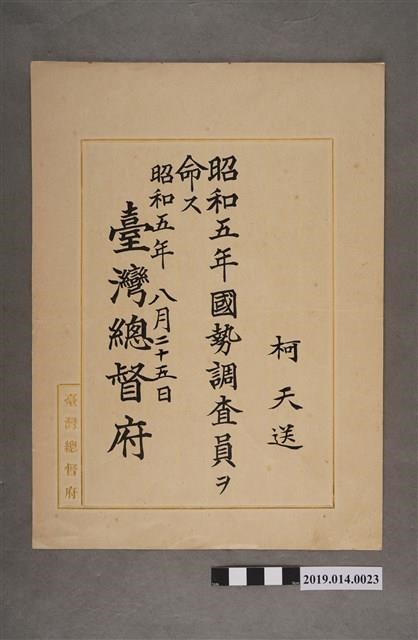 柯天送
昭和五年國勢調査員ヲ
命ス
昭和五年八月二十五日
臺灣總督府
臺灣總督府
2019.014.0023